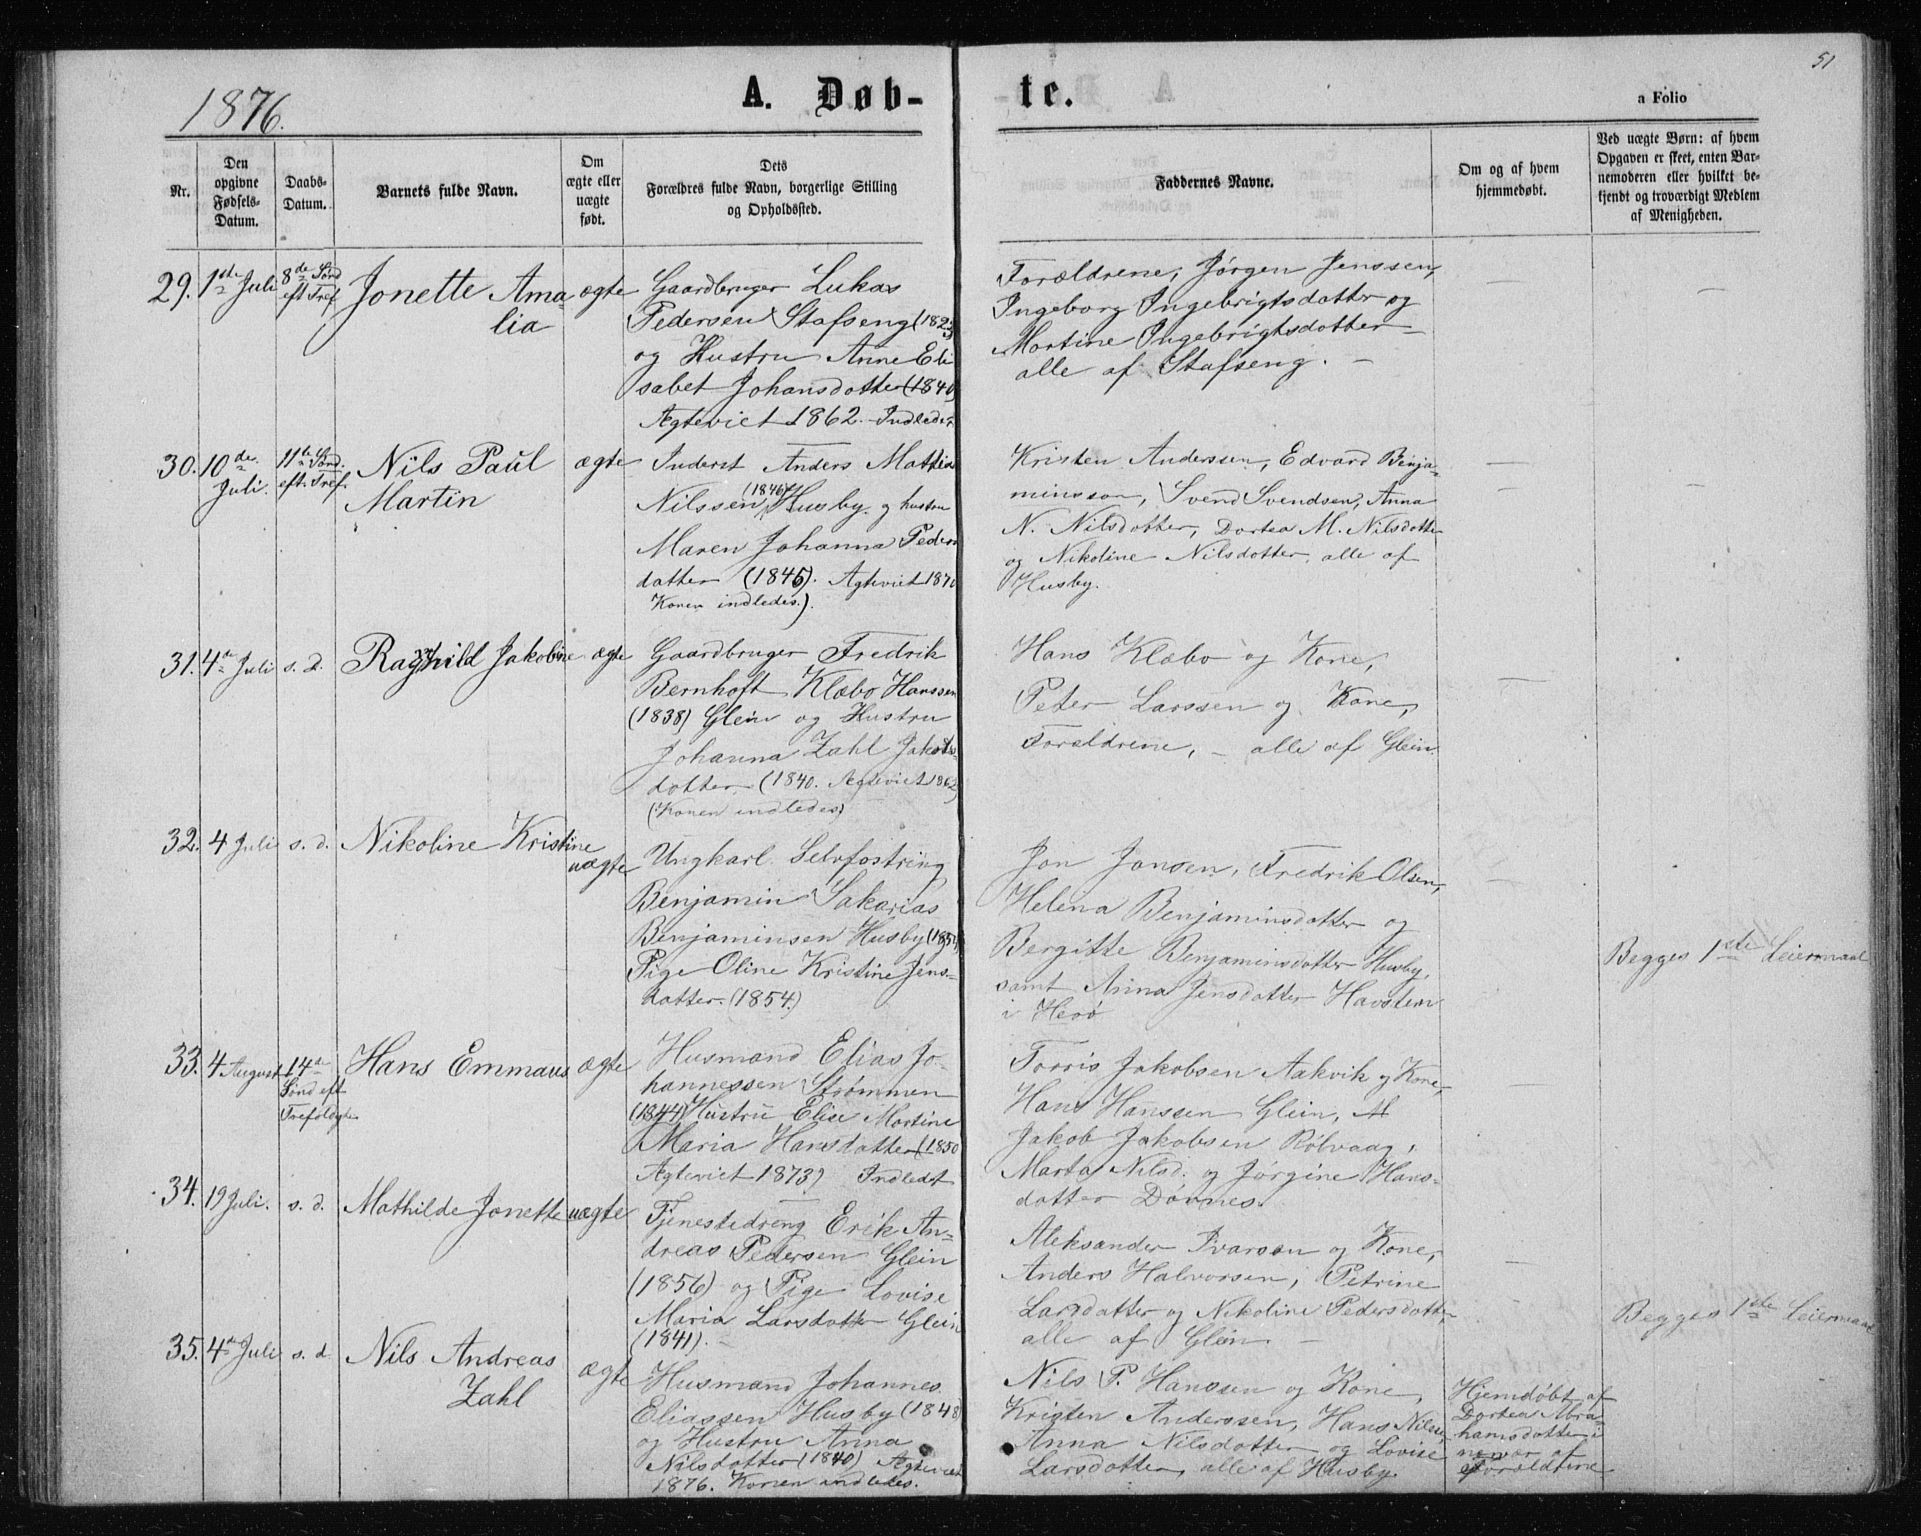 51
1876.
A. Døb-
te.
a Folio
Nr.
Den
opgivne
Fødsels-
Datum.
Daabs-
Datum.
Barnets fulde Navn.
Om
ægte eller
uægte
født.
Dets
Forældres fulde Navn, borgerlige Stilling
og Opholdssted.
Faddernes Navne.
Om og af hvem
hjemmedøbt.
Ved uægte Børn: af hvem
Opgaven er skeet, enten Bar-
nemoderen eller hvilket be-
kjendt og troværdigt Medlem
af Menigheden.
29. 1ste Juli
8de Sönd
eft Tref
Jonette Ama-
lia
ægte
Gaardbruger Lukas
Pedersen Stafseng (182
og Hustru Anne Eli
sabet Johansdotter (1840)
Ægteviet 1862. Indledt
Forældrene, Jørgen Jenssen,
Ingeborg Ingebrigtsdatter og
Martine Ingebrigtsdotter
alle af Stafseng. –
30. 10de
Juli.
11te Sönd.
eft. Tref.
Nils Paul
Martin
ægte
Inderst Anders Mathia
Nilssen (1846) Husby. og hustru
Maren Johanna Peders
datter (1845). Ægteviet 1870
Konen indledes.).
Kristen Anderssen, Edvard Benja-
minsson, Svend Svendsen, Anna
N. Nilsdotter, Dortea M. Nilsdotter
og Nikoline Nilsdotter, alle af
Husby.
31. 4de Juli
s. d.
Ragnhild Jakobine
ægte
Gaardbruger Fredrik
Bernhoft Klæbo Hanssen
(1838) Glein og Hustru
Johanna Zahl Jakobs-
dotter (1840. Ægteviet 1862
(Konen indledes)
Hans Klæbo og Kone,
Peter Larssen og Kone,
Forældrene, – alle af Glein.
32. 4 Juli
s. d.
Nikoline Kristine
uægte
Ungkarl Selvfostring
Benjamin Sakarias
Benjaminsen Husby (185
Pige Oline Kristine Jens-
datter. (1854.)
Jon Jonsen, Fredrik Olsen,
Helena Benjaminsdatter og
Bergitte Benjaminsdotter Husby,
samt Anna Jensdotter Havsteen
i Herö
Begges 1ste Leiermaal
33. 4 August
14de
Sönd eft
Trefoldgh
Hans Emmaus
ægte
Husmand Elias Jo-
hannessen Strømmen
(1844) Hustru Elise Martine
Maria Hansdatter (1850
Ægteviet 1873) Indledt
Torris Jakobsen Aakvik og Kone,
Hans Hanssen Glein,
Jakob Jakobsen Rölvaag,
Marta Nilsd. og Jørgine Hans-
dotter Dönnes.
34. 19 Juli.
s. d.
Mathilde Jonette
uægte
Tjenestedreng Erik An-
dreas Pedersen Glein
(1856) og Pige Lovise
Maria Larsdotter Glein
(1841). –
Aleksander Ivarsen og Kone,
Anders Halvorsen, Petrine
Larsdatter og Nikoline Pedersdotter,
alle af Glein –
Begges 1ste Leiermaal
35. 4de Juli
s. d
Nils Andreas
Zahl
ægte
Husmand Johannes
Eliassen Husby (1848)
og Hustru Anna
Nilsdotter (1840) Ægteviet
1876. Konen indledes.
Nils P. Hanssen og Kone,
Kristen Anderssen, Hans Nilsen
Anna Nilsdotter og Lovise
Larsdotter, alle af Husby
Hjemdöbt af
Dortea Abra-
hamsdotter i
nærvær af
Forældrene